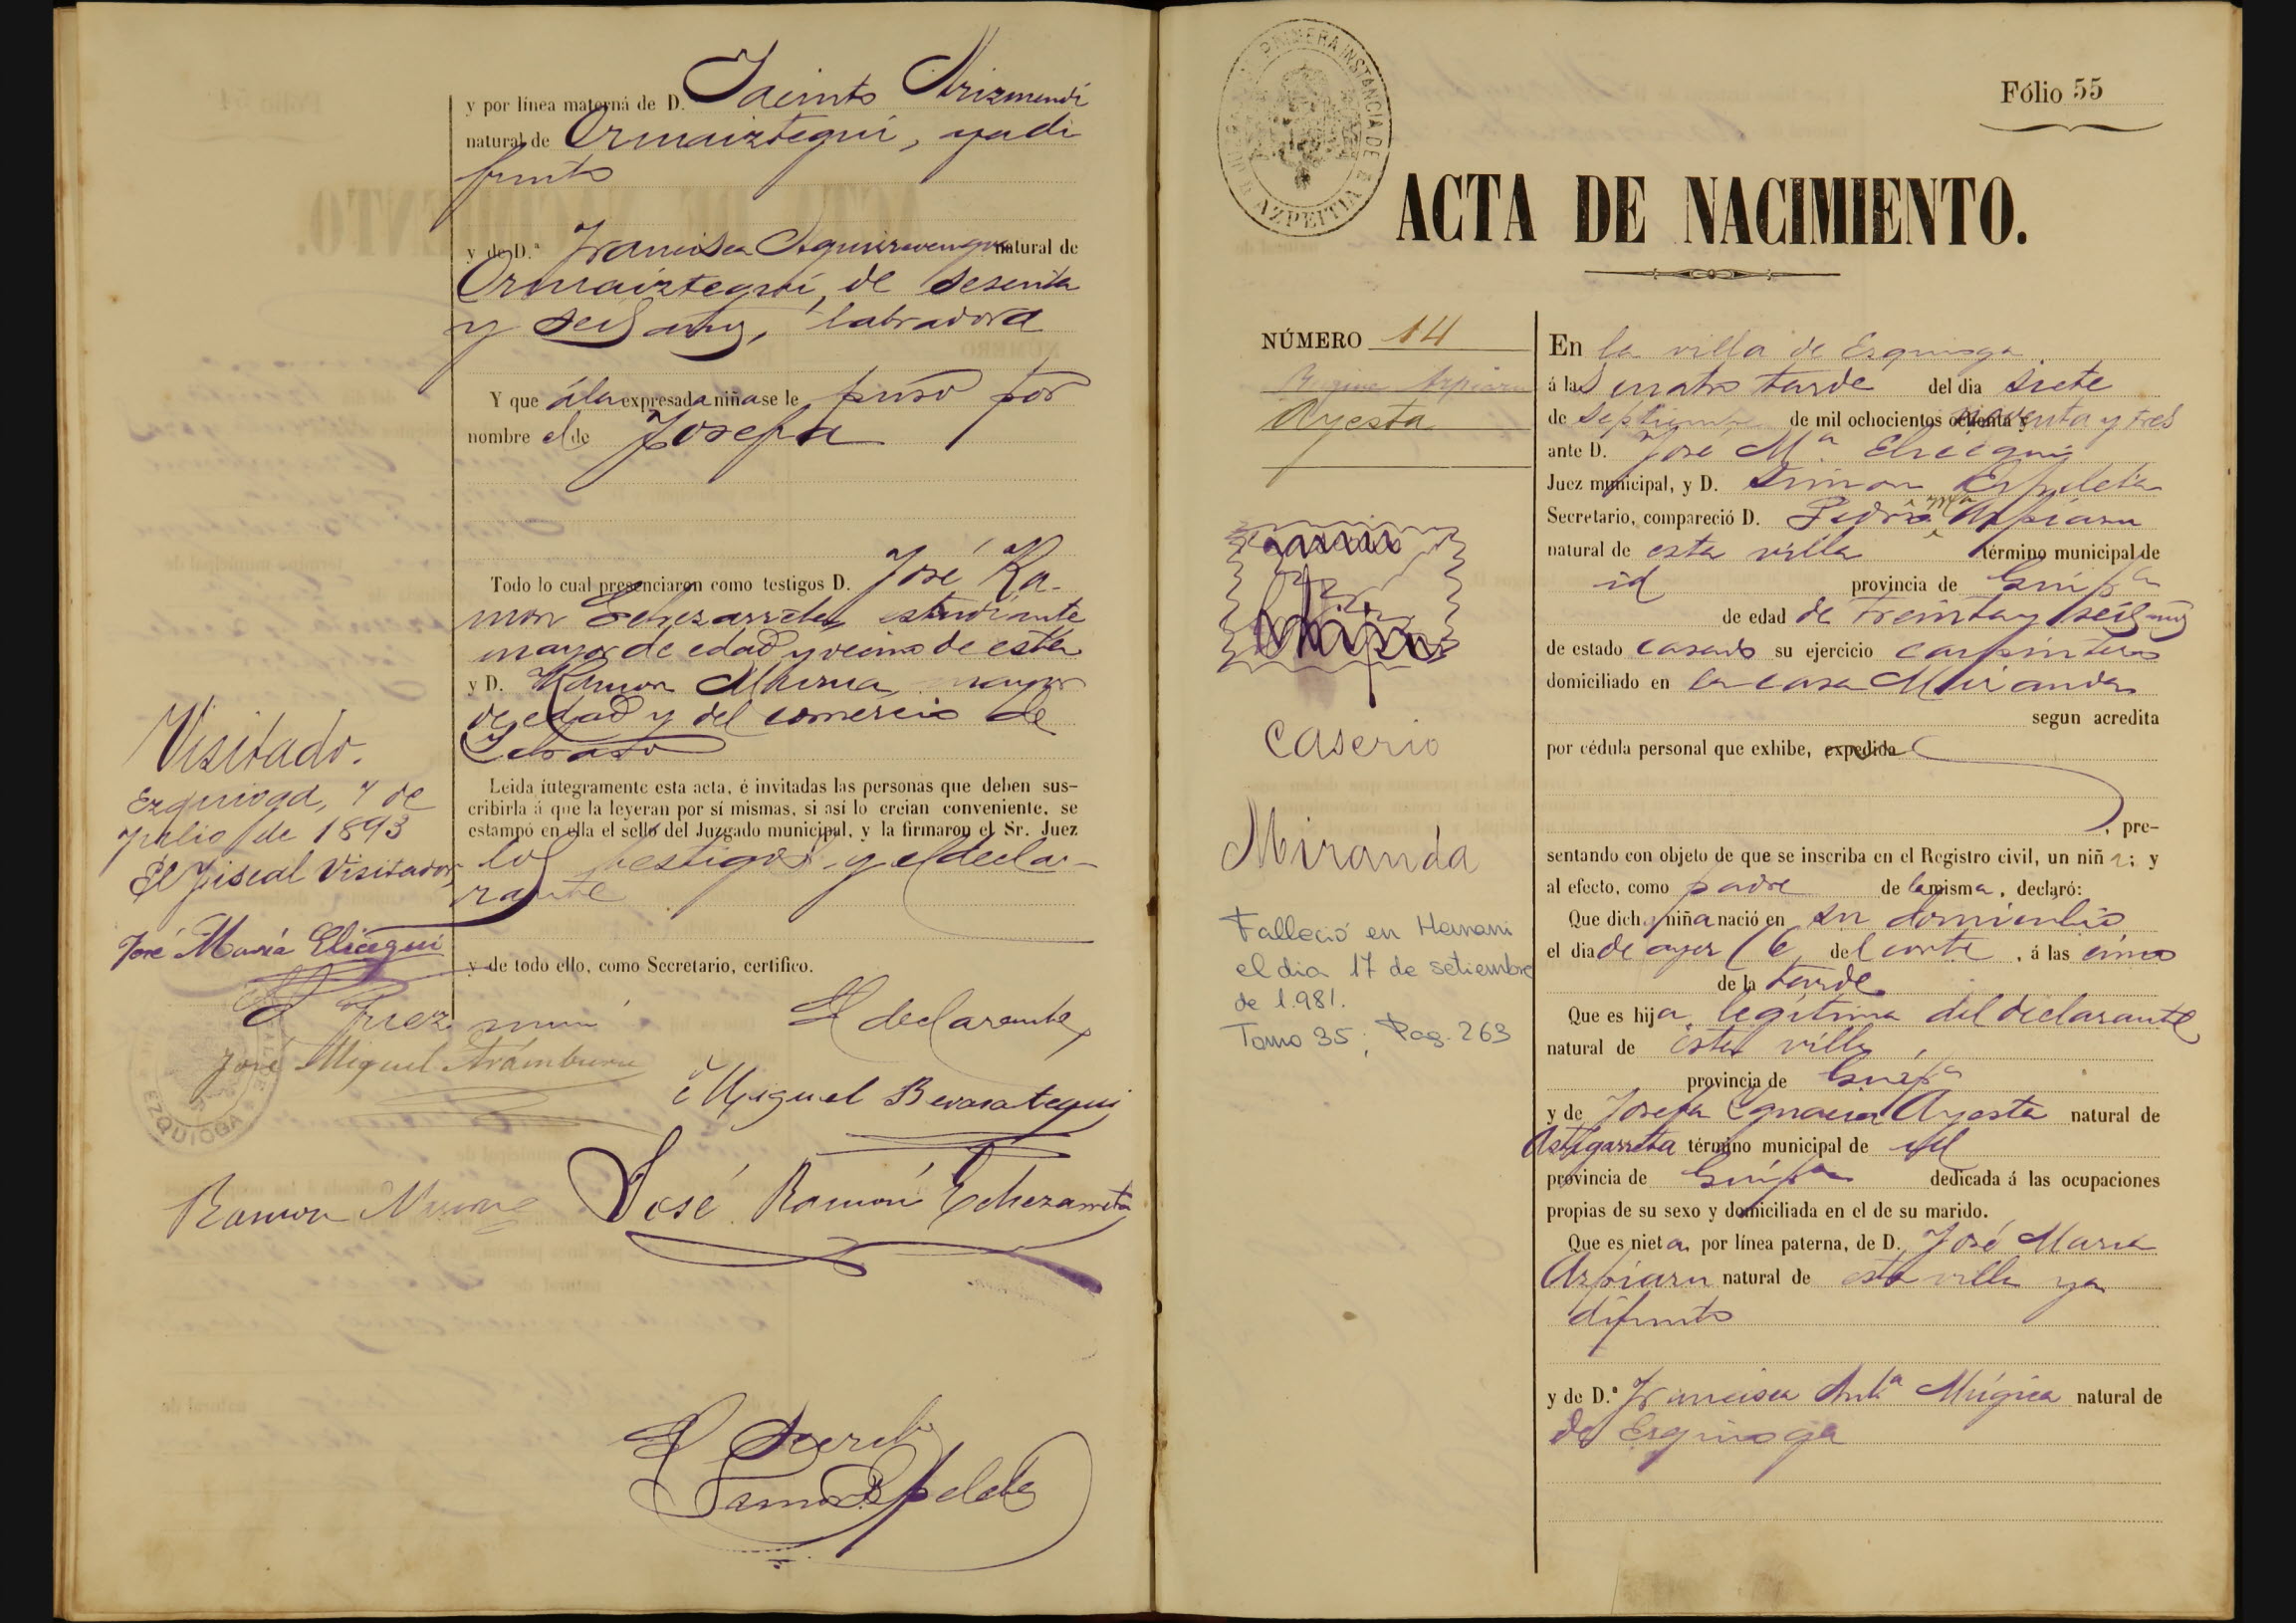 y por línea materna de D. Jacinto Arizmendi
natural de Ormaiztegui, ya di
funto
y de D.ª Francisca Aguirrezengoa natural de
Ormaiztegui, de sesenta
y seis años, labradora
Y que á la expresada niña se le puso por
nombre el de Josefa
Todo lo cual presenciaron como testigos D. José Ra-
mon Echezarreta, estudiante
mayor de edad y vecino de esta
y D. Ramon mayor
de edad y del comercio de
Visitado.
Ezquioga, 7 de
Julio de 1893
El Fiscal Visitador,
José María Elicegui
Leida íntegramente esta acta, é invitadas las personas que deben sus-
cribirla á que la leyeran por sí mismas, si así lo creian conveniente, se
estampó en ella el sello del Juzgado municipal, y la firmaron el Sr. Juez
los testigos y el decla-
rante
y de todo ello, como Secretario, certifico.
El Juez mun
José Miguel Aramburu
EZQUIOGA
El declarante,
Miguel Berasategui
Ramon
José Ramón Echezarreta
El Secret.º
Simon Ezpeleta
PRIMERA INSTANCIA DE
AZPEITIA
Fólio 55
ACTA DE NACIMIENTO.
NÚMERO 14
Regina Azpiazu
Ayesta
Caserio
Miranda
Falleció en Hernani
el dia 17 de setiembre
de 1.981.
Tomo 35; Pag. 263
En la villa de Ezquioga
á las cuatro tarde del dia siete
de Septiembre de mil ochocientos ochenta y noventa y tres
ante D. José M.ª Elicegui
Juez municipal, y D. Simon Ezpeleta
Secretario, compareció D. Pedro Azpiazu
natural de esta villa término municipal de
id provincia de Guip.ª
de edad de treinta y seis años
de estado casado su ejercicio carpintero
domiciliado en la casa Miranda
segun acredita
por cédula personal que exhibe, expedida
, pre-
sentando con objeto de que se inscriba en el Registro civil, un niña; y
al efecto, como padre de la misma, declaró:
Que dicha niña nació en su domicilio
el dia de ayer (6 del corte, á las cinco
de la tarde
Que es hija legítima del declarante
natural de esta villa,
provincia de Guip.ª
y de Josefa Ignacia Ayesta natural de
Astigarreta término municipal de id
provincia de Guip.ª dedicada á las ocupaciones
propias de su sexo y domiciliada en el de su marido.
Que es nieta por línea paterna, de D. José Maria
Azpiazu natural de esta villa ya
difunto
y de D.ª Francisca Ant.ª Múgica natural de
de Ezquioga